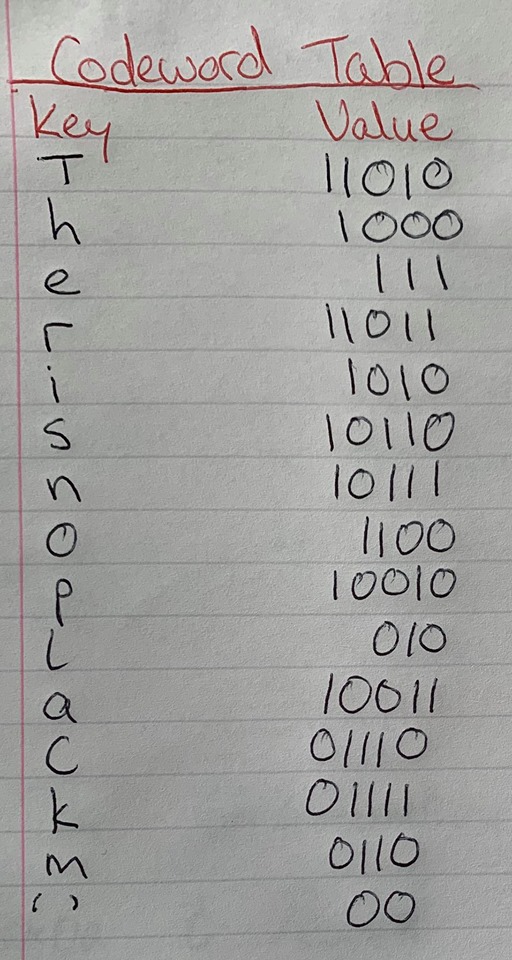 Codeword Table
Key Value
T 11010
h 1000
e 111
r 11011
i 1010
s 10110
n 10111
o 1100
p 10010
L 010
a 10011
C 01110
k 01111
m 0110
' ' 00